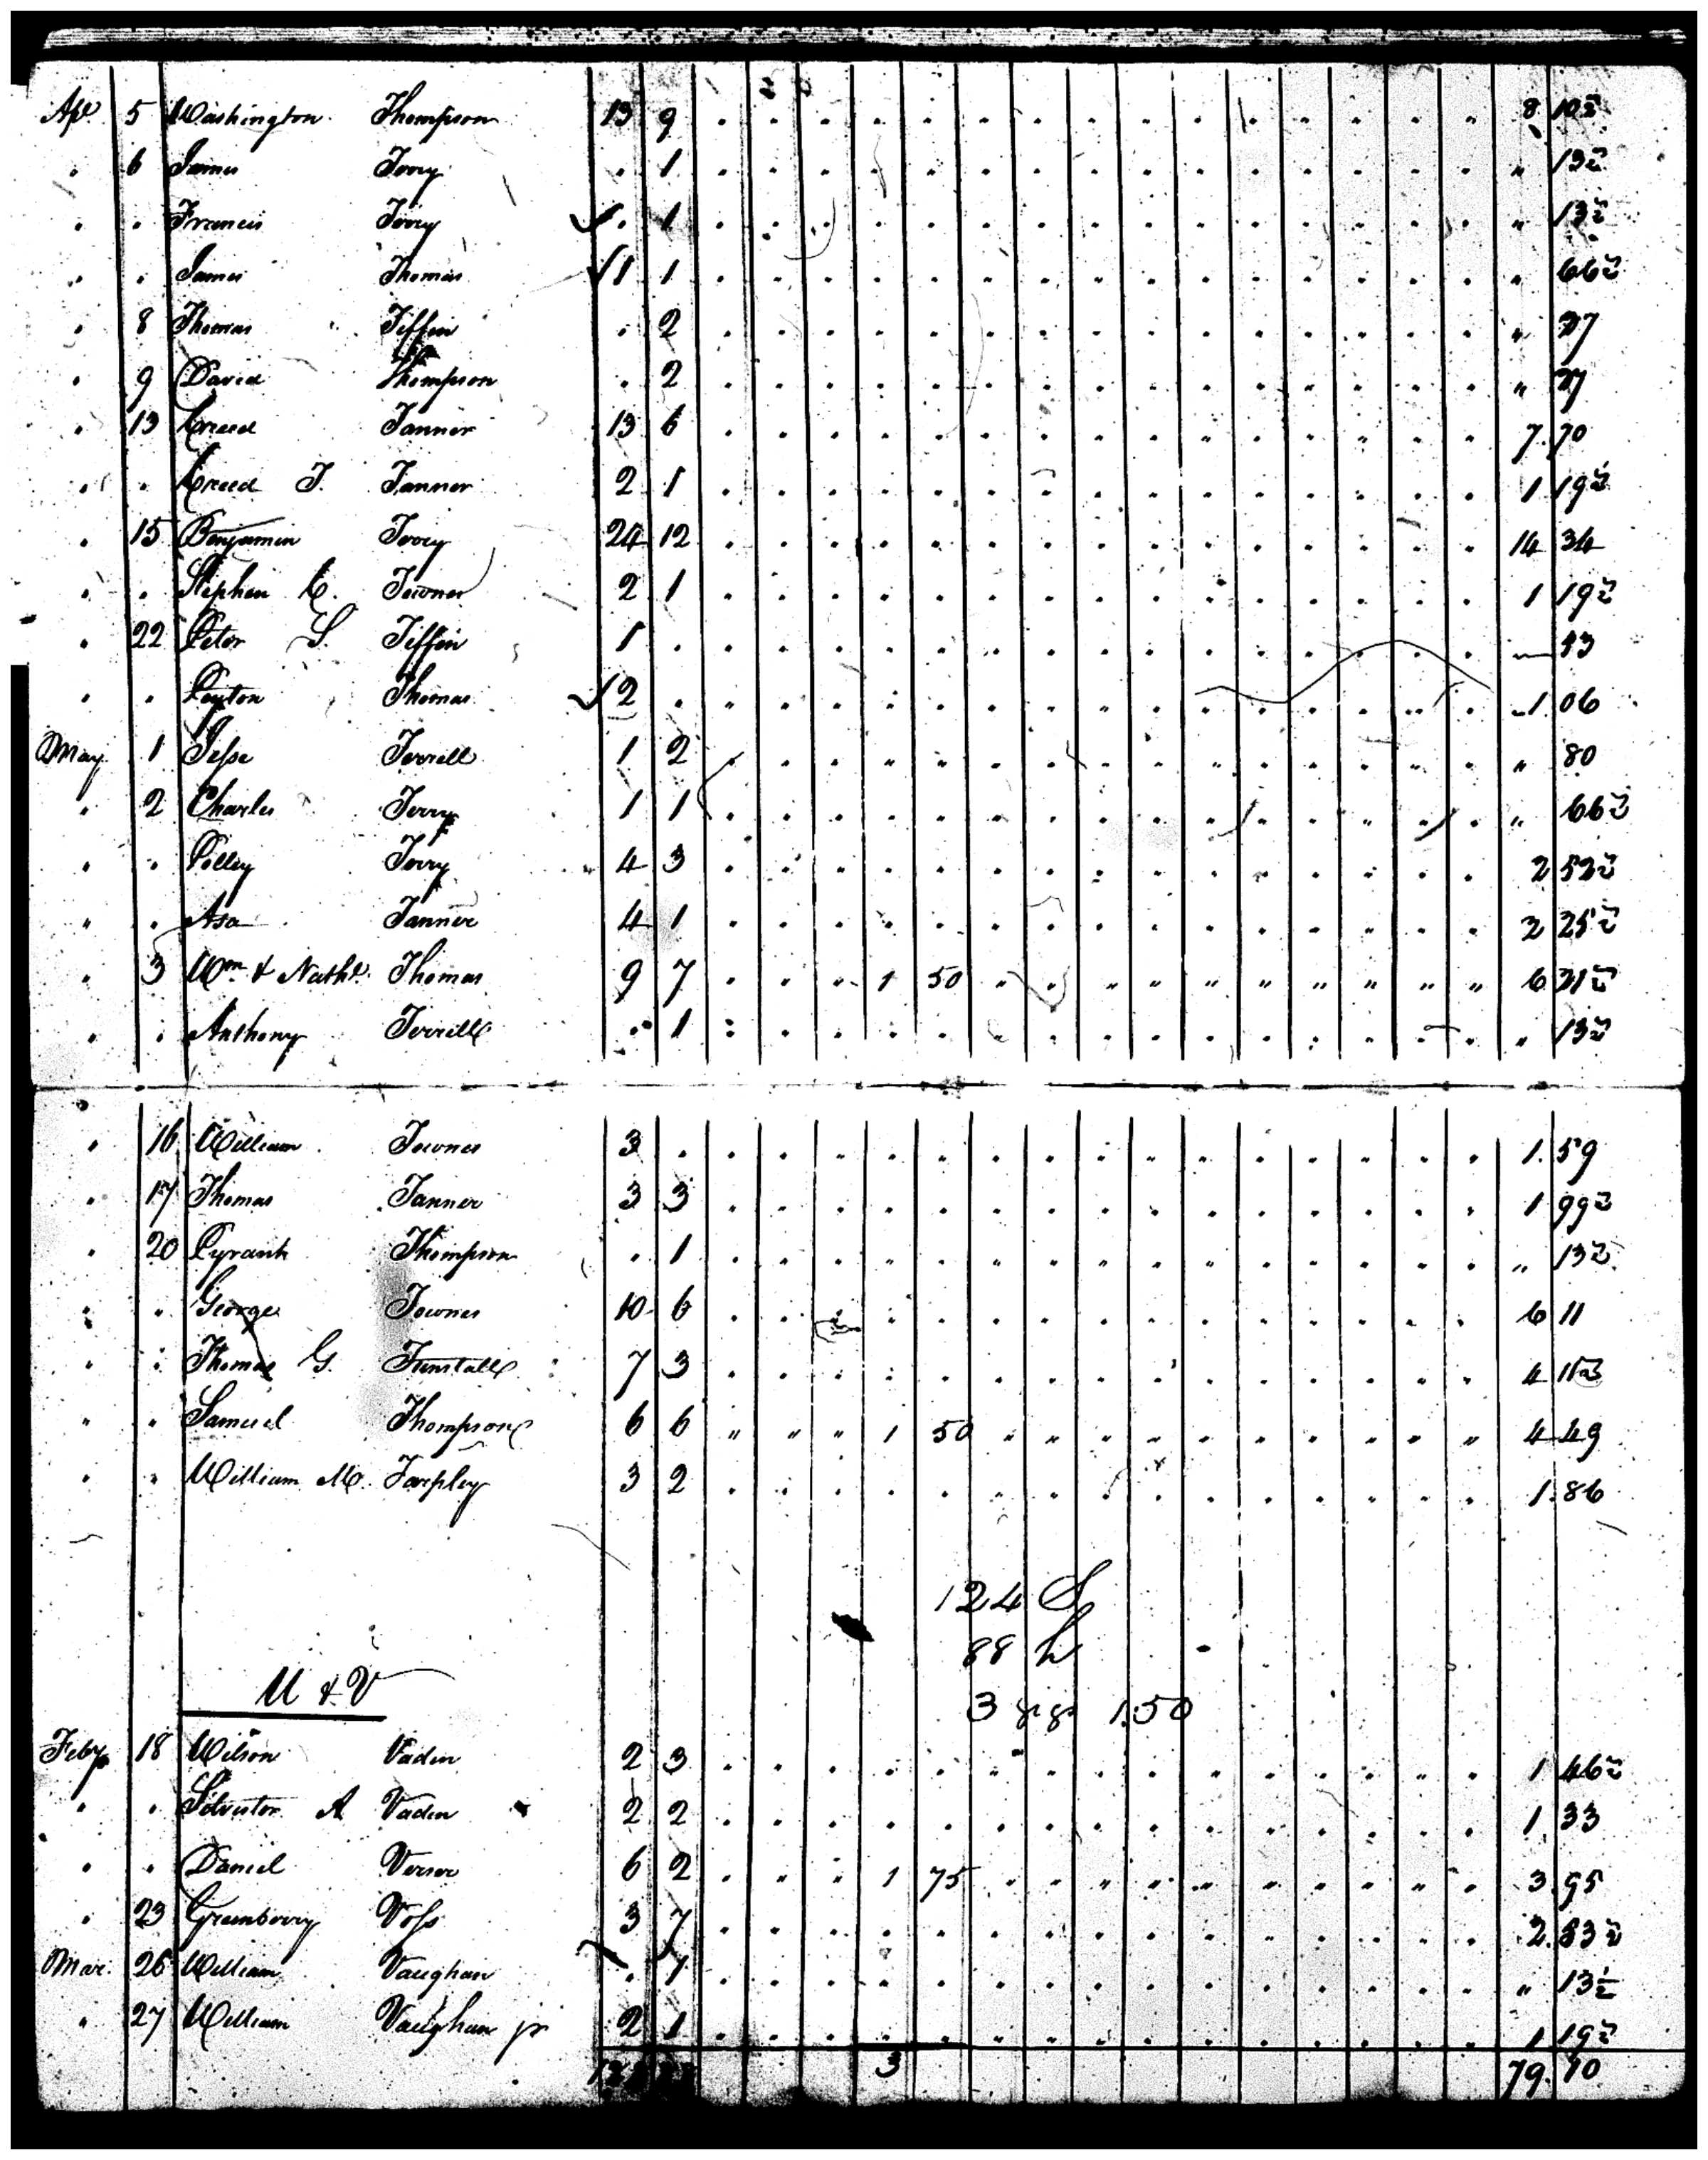 Ap. 5 Washington Thompson 13 9 8 10½
" 6 James Terry . 1 " 13½
" " Francis Terry ✓ . 1 " 13½
" " James Thomas ✓ 1 1 " 66½
" 8 Thomas Tiffin . 2 " 27
" 9 David Thompson . 2 " 27
" 13 Creed Tanner 13 6 7.70
" " Creed T. Tanner 2 1 1 19½
" 15 Benjamin Terry 24 12 14 34
" " Stephen C. Townes 2 1 1 19½
" 22 Peter S. Tiffin 1 . 53
" " Peyton Thomas ✓ 2 . 1 06
May 1 Jesse Terrell 1 2 " 80
" 2 Charles Terry 1 1 " 66½
" " Polley Terry 4 3 2 52½
" " Asa Tanner 4 1 2 25½
" 3 Wm & Nathl. Thomas 9 7 1 50 6 21½
" " Anthony Terrell . 1 " 13½
" 16 William Townes 3 . 1.59
" 17 Thomas Tanner 3 3 1 99½
" 20 Pyrant Thompson . 1 " 13½
" " George Townes 10 6 6 11
" " Thomas G. Tunstall 7 3 4 11½
" " Samuel Thompson 6 6 1 50 4 49
" " William M. Tarpley 3 2 1.86
124 S
88 h
U & V
3 gigs 1.50
Feby 18 Wilson Vaden 2 3 1 46½
" " Silvester A Vaden 2 2 1 33
" " Daniel Verser 6 2 1 75 3 95
" 23 Greenberry Voss 3 7 2.53½
Mar. 26 William Vaughan . 1 " 13½
" 27 William Vaughan jr 2 1 1 19½
3 79.10